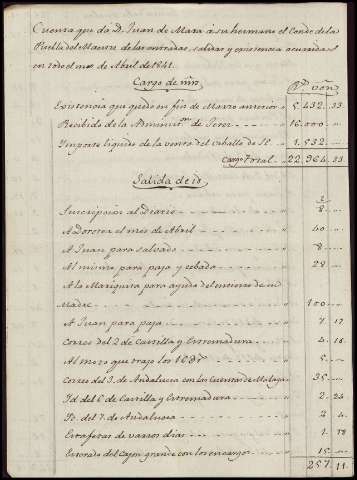 Cuenta que da D. Juan de Mara á su hermano el Conde de la
Puebla del Maestre de las entradas, salidas y existencia ocurridas
en todo el mes de Abril de 1841.
Cargo de mrs R.s von
Existencia que quedó en fin de Marzo anterior " 5.432. 33
Recibido de la Adminis.on de Jerez " 16.000. "
Importe liquido de la venta del caballo de Sª " 1.532. "
Cargo total " 22.964. 33
Salida de id.
Suscripcion al Diario " 8 "
A Dorotea el mes de Abril " 40 "
A Juan para salvado " 8 "
Al mismo para paja y cebada " 28 "
A la Mariquita para ayuda del entierro de su
Madre " 100 "
A Juan para paja " 7 17
Correo del 2 de Castilla y Extremadura " 4 16
Al mozo que trajo los " 5 "
Correo del 3. de Andalucia con las Cuentas de Malaga " 35 "
Id del 6 de Castilla y Extremadura " 2 24
Id. del 7. de Andalucia " 2 4
Estafetas de varios dias " 1 18
Esterado del cajon grande con los encargos " 15 "
257. 11